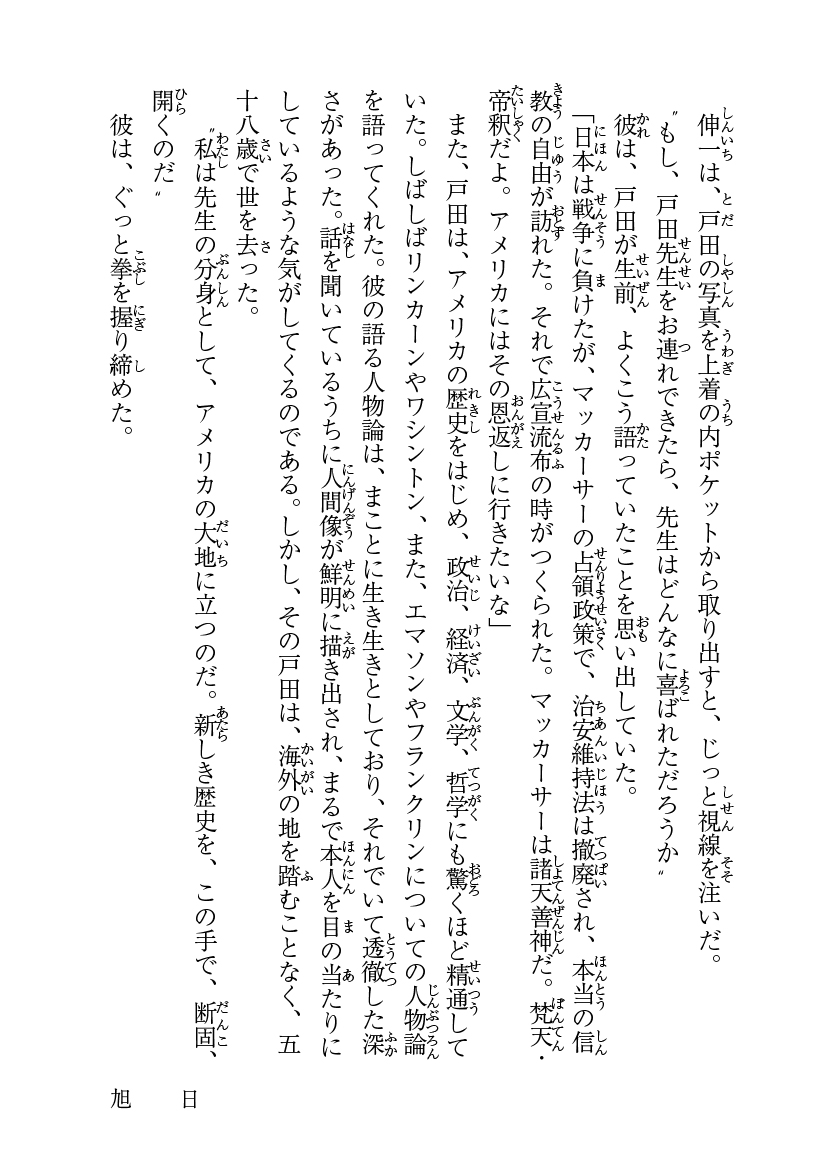 伸一は、戸田の写真を上着の内ポケットから取り出すと、じっと視線を注いだ。
〝もし、戸田先生をお連れできたら、先生はどんなに喜ばれただろうか〟
彼は、戸田が生前、よくこう語っていたことを思い出していた。
「日本は戦争に負けたが、マッカーサーの占領政策で、治安維持法は撤廃され、本当の信
教の自由が訪れた。それで広宣流布の時がつくられた。マッカーサーは諸天善神だ。梵天・
帝釈だよ。アメリカにはその恩返しに行きたいな」
また、戸田は、アメリカの歴史をはじめ、政治、経済、文学、哲学にも驚くほど精通して
いた。しばしばリンカーンやワシントン、また、エマソンやフランクリンについての人物論
を語ってくれた。彼の語る人物論は、まことに生き生きとしており、それでいて透徹した深
さがあった。話を聞いているうちに人間像が鮮明に描き出され、まるで本人を目の当たりに
しているような気がしてくるのである。しかし、その戸田は、海外の地を踏むことなく、五
十八歳で世を去った。
〝私は先生の分身として、アメリカの大地に立つのだ。新しき歴史を、この手で、断固、
開くのだ〟
彼は、ぐっと拳を握り締めた。
旭日